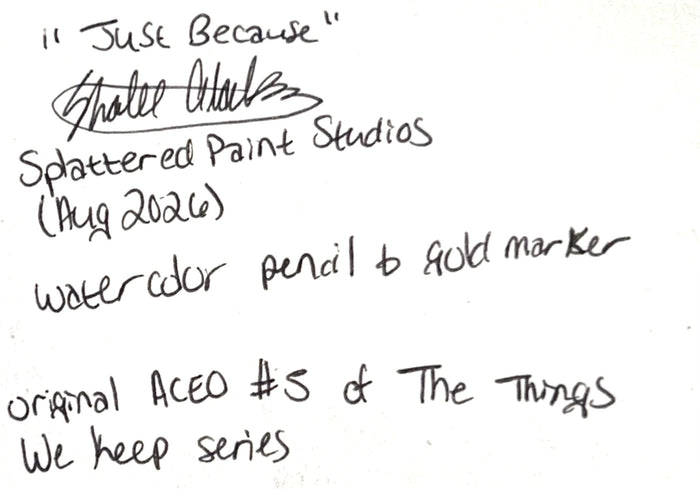 "Just Because"
Splattered Paint Studios
(Aug 2026)
watercolor pencil & gold marker
original ACEO #5 of The Things
We keep series